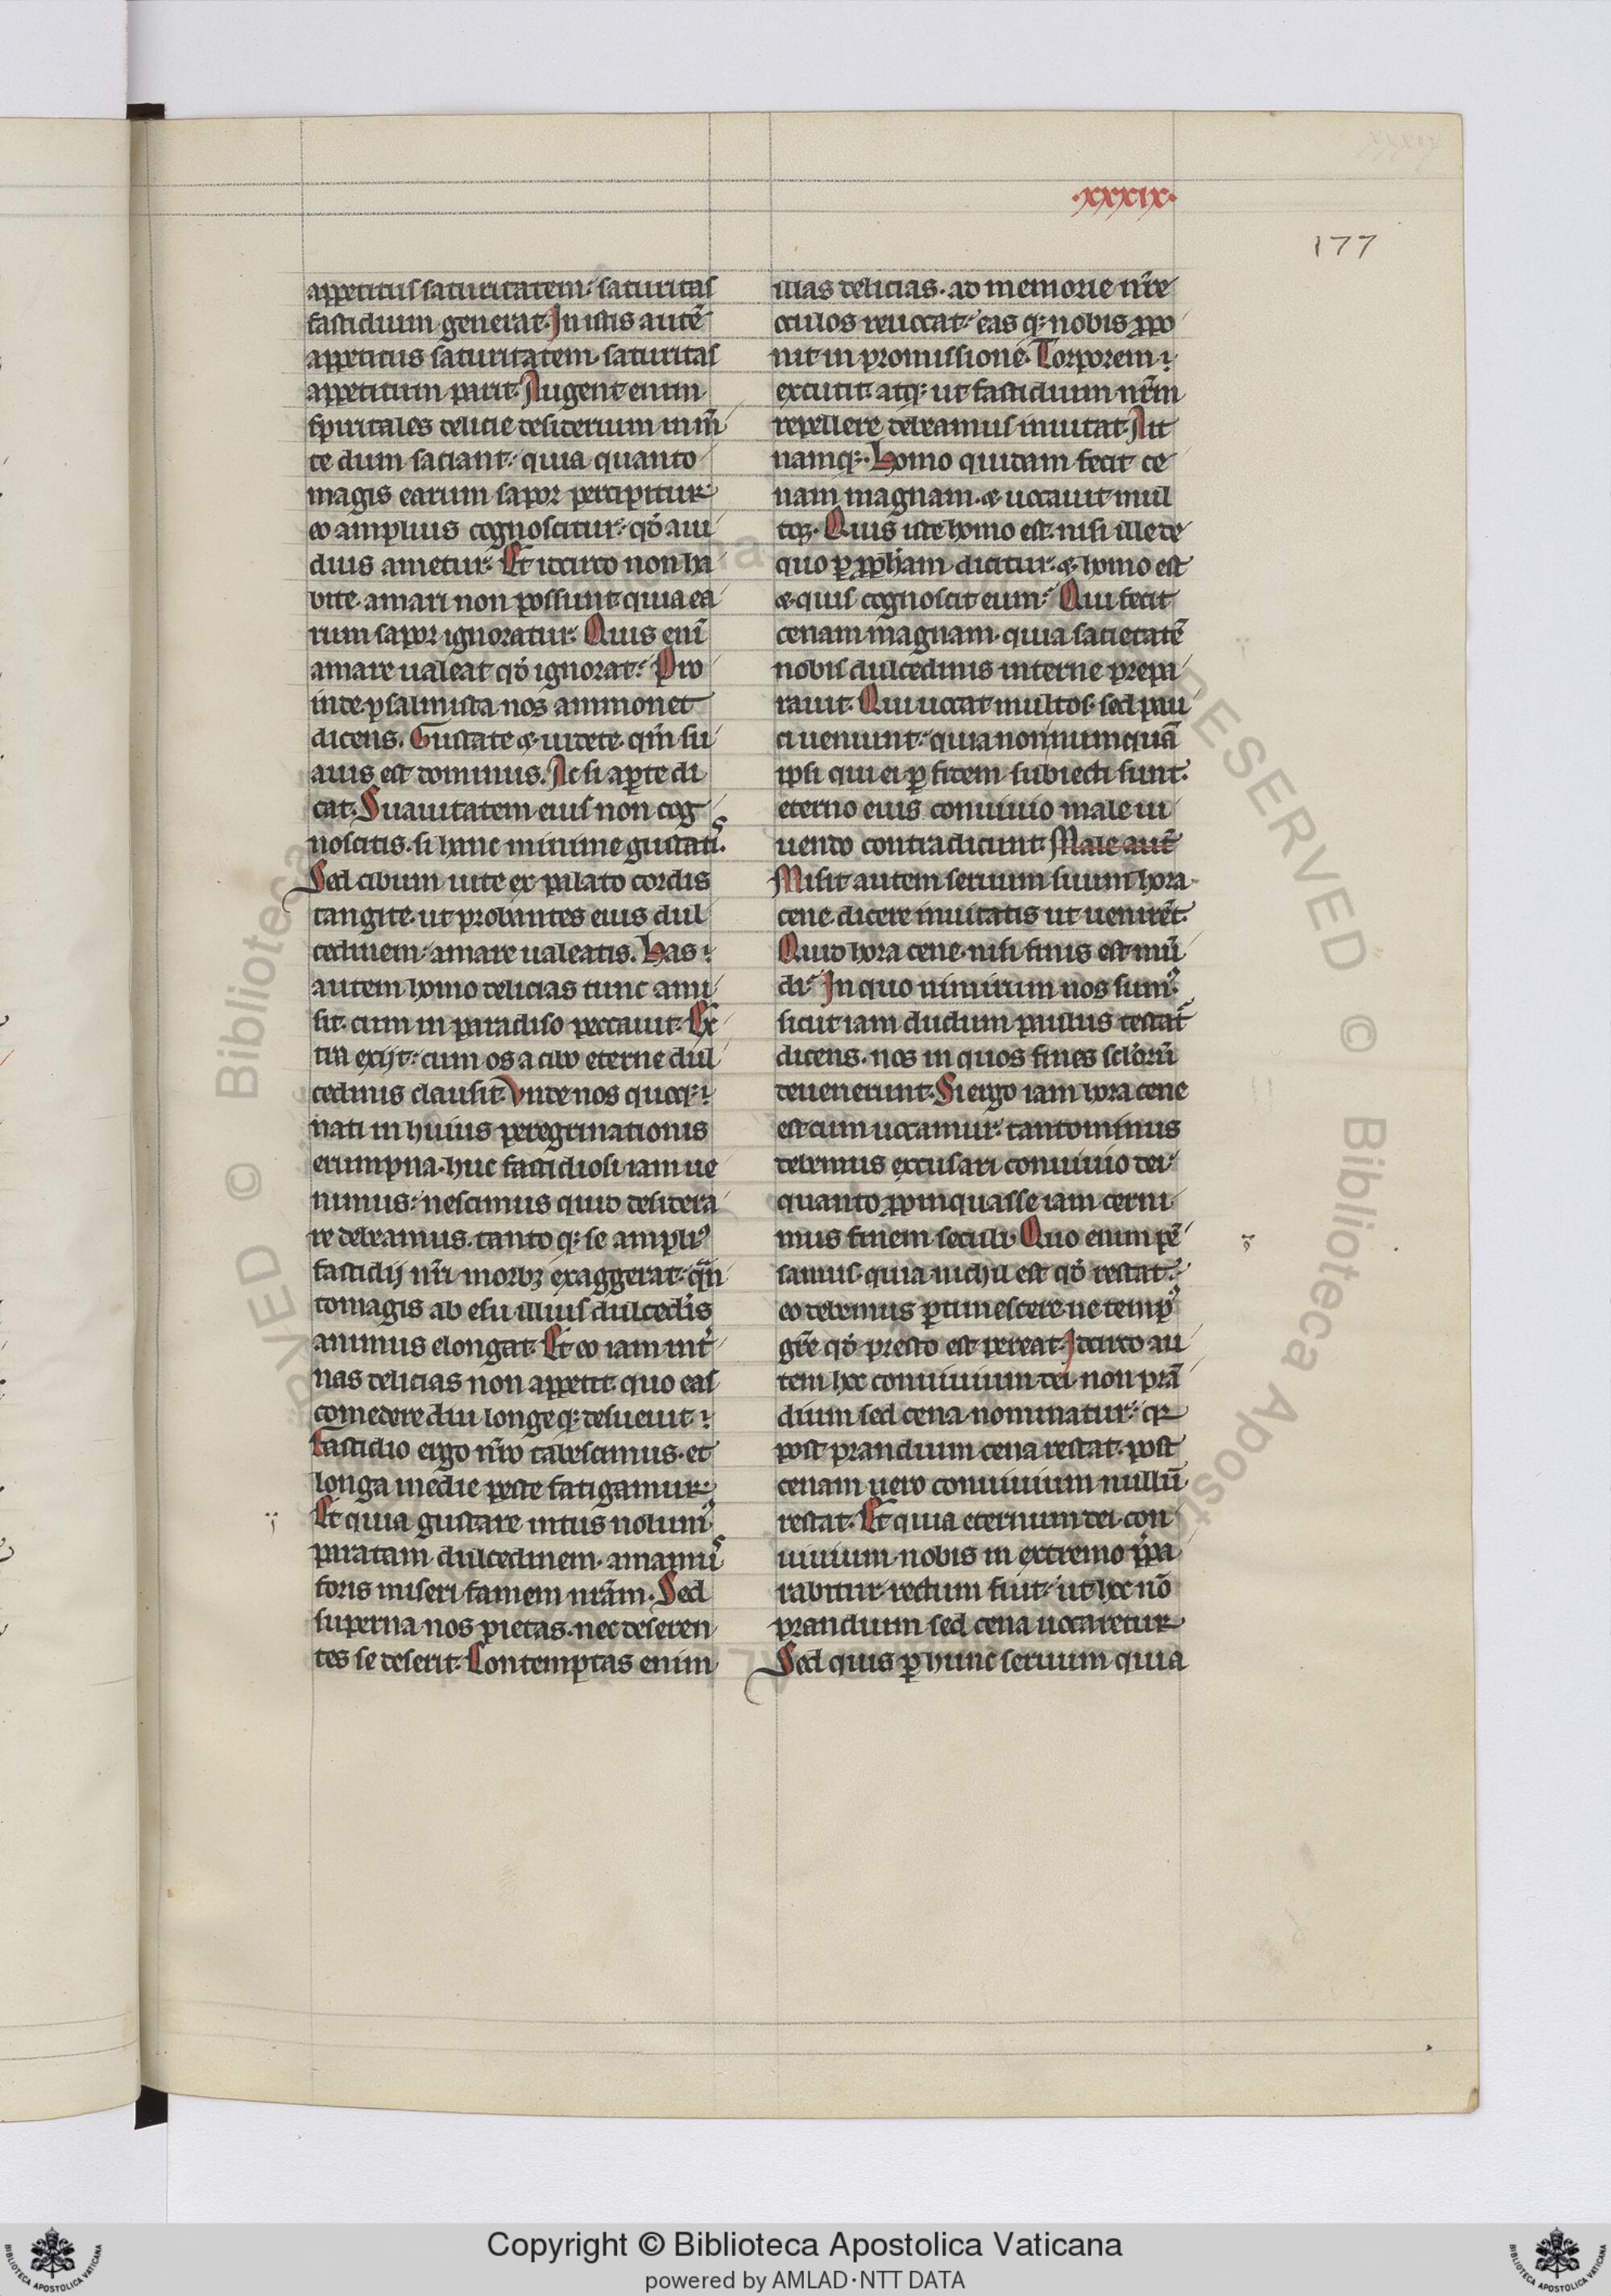 ·xxxix·
177
appetitus saturitatem: saturitas
fastidium generat. In istis autē
appetitus saturitatem. saturitas
appetitum parit. Augent enim
spiritales delicie desiderium in m̄
te dum saciant: quia quanto
magis earum sapor percipitur
eo amplius cognoscitur: qd̓ aui
dius ametur: Et iccirco non ha
bite. amari non possunt quia ea
rum sapor ignoratur: Quis enī
amare ualeat qd̓ ignorat: Pro
inde psalmista nos ammonet
dicens. Gustate & uidete. qm̄ su
auis est dominus. Ac si aꝑte di
cat. Suauitatem eius non cog
noscitis. si hanc minime gustatiˢ.
Sed cibum uite ex palato cordis
tangite. ut probantes eius dul
cedinem: amare ualeatis. Has
autem homo delicias tunc ami
sit. cum in paradiso peccauit. Ex
tra exijt: cum os a cibo eterne dul
cedinis clausit. Vnde nos quoq:
nati in huius peregrinationis
erumpna. huc fastidiosi iam ue
nimus: nescimus quid desidera
re debeamus. tanto q: se ampliꝰ
fastidij nr̄i morbꝫ exaggerat. qn̄
to magis ab esu illius dulcedīs
animus elongat. Et eo iam int̓
nas delicias non appetit. quo eas
comedere diu longe q: desueuit
Fastidio ergo nr̄o tabescimus. et
longa inedie peste fatigamur:
Et quia gustare intus nolumꝰ
paratam dulcedinem. amamuˢ
foris miseri famem nr̄am. Sed
superna nos pietas. nec deseren
tes se deserit. Contemptas enim
illas delicias. ad memorie nr̄e
oculos reuocat: eas q: nobis ꝓpo
nit in promissione. Torporem
excutit. atq: ut fastidium nr̄m
repellere debeamus inuitat. Ait
namq:. Homo quidam fecit ce
nam magnam. & uocauit mul
tos. Quis iste homo est. nisi ille de
quo ꝑ ꝓph̄am dicitur. & homo est
& quis cognoscit eum: Qui fecit
cenam magnam. quia satietatē
nobis dulcedinis interne prepa
rauit. Qui uocat multos. sed pau
ci ueniunt: quia nonnumquā
ipsi qui ei ꝑ fidem subiecti sunt.
eterno eius conuiuio male ui
uendo contradicunt. Male aut̄
Misit autem seruum suum hora
cene dicere inuitatis ut uenirēt.
Quid hora cene. nisi finis est mū
di: In quo nimirum nos sumꝰ.
sicut iam dudum paulus testat̓
dicens. nos in quos fines sclorū
deuenerunt. Si ergo iam hora cene
est cum uocamur: tanto minus
debemus excusari conuiuio dei:
quanto ꝓpinquasse iam cerni
mus finem seculi. Quo enim pē
samus. quia nichil est qd̓ restat:
eo debemus ꝑtimescere. ne tempꝰ
gr̄e qd̓ presto est pereat. Idcirco au
tem hoc conuiuium dei. non prā
dium sed cena nominatur: qꝛ
post prandium cena restat. post
cenam uero conuiuium nullū
restat. Et quia eternum dei con
uiuium. nobis in extremo p̓pa
rabitur. rectum fuit: ut hoc nō
prandium sed cena uocaretur
Sed quis ꝑ hunc seruum quia
Copyright © Biblioteca Apostolica Vaticana
powered by AMLAD·NTT DATA